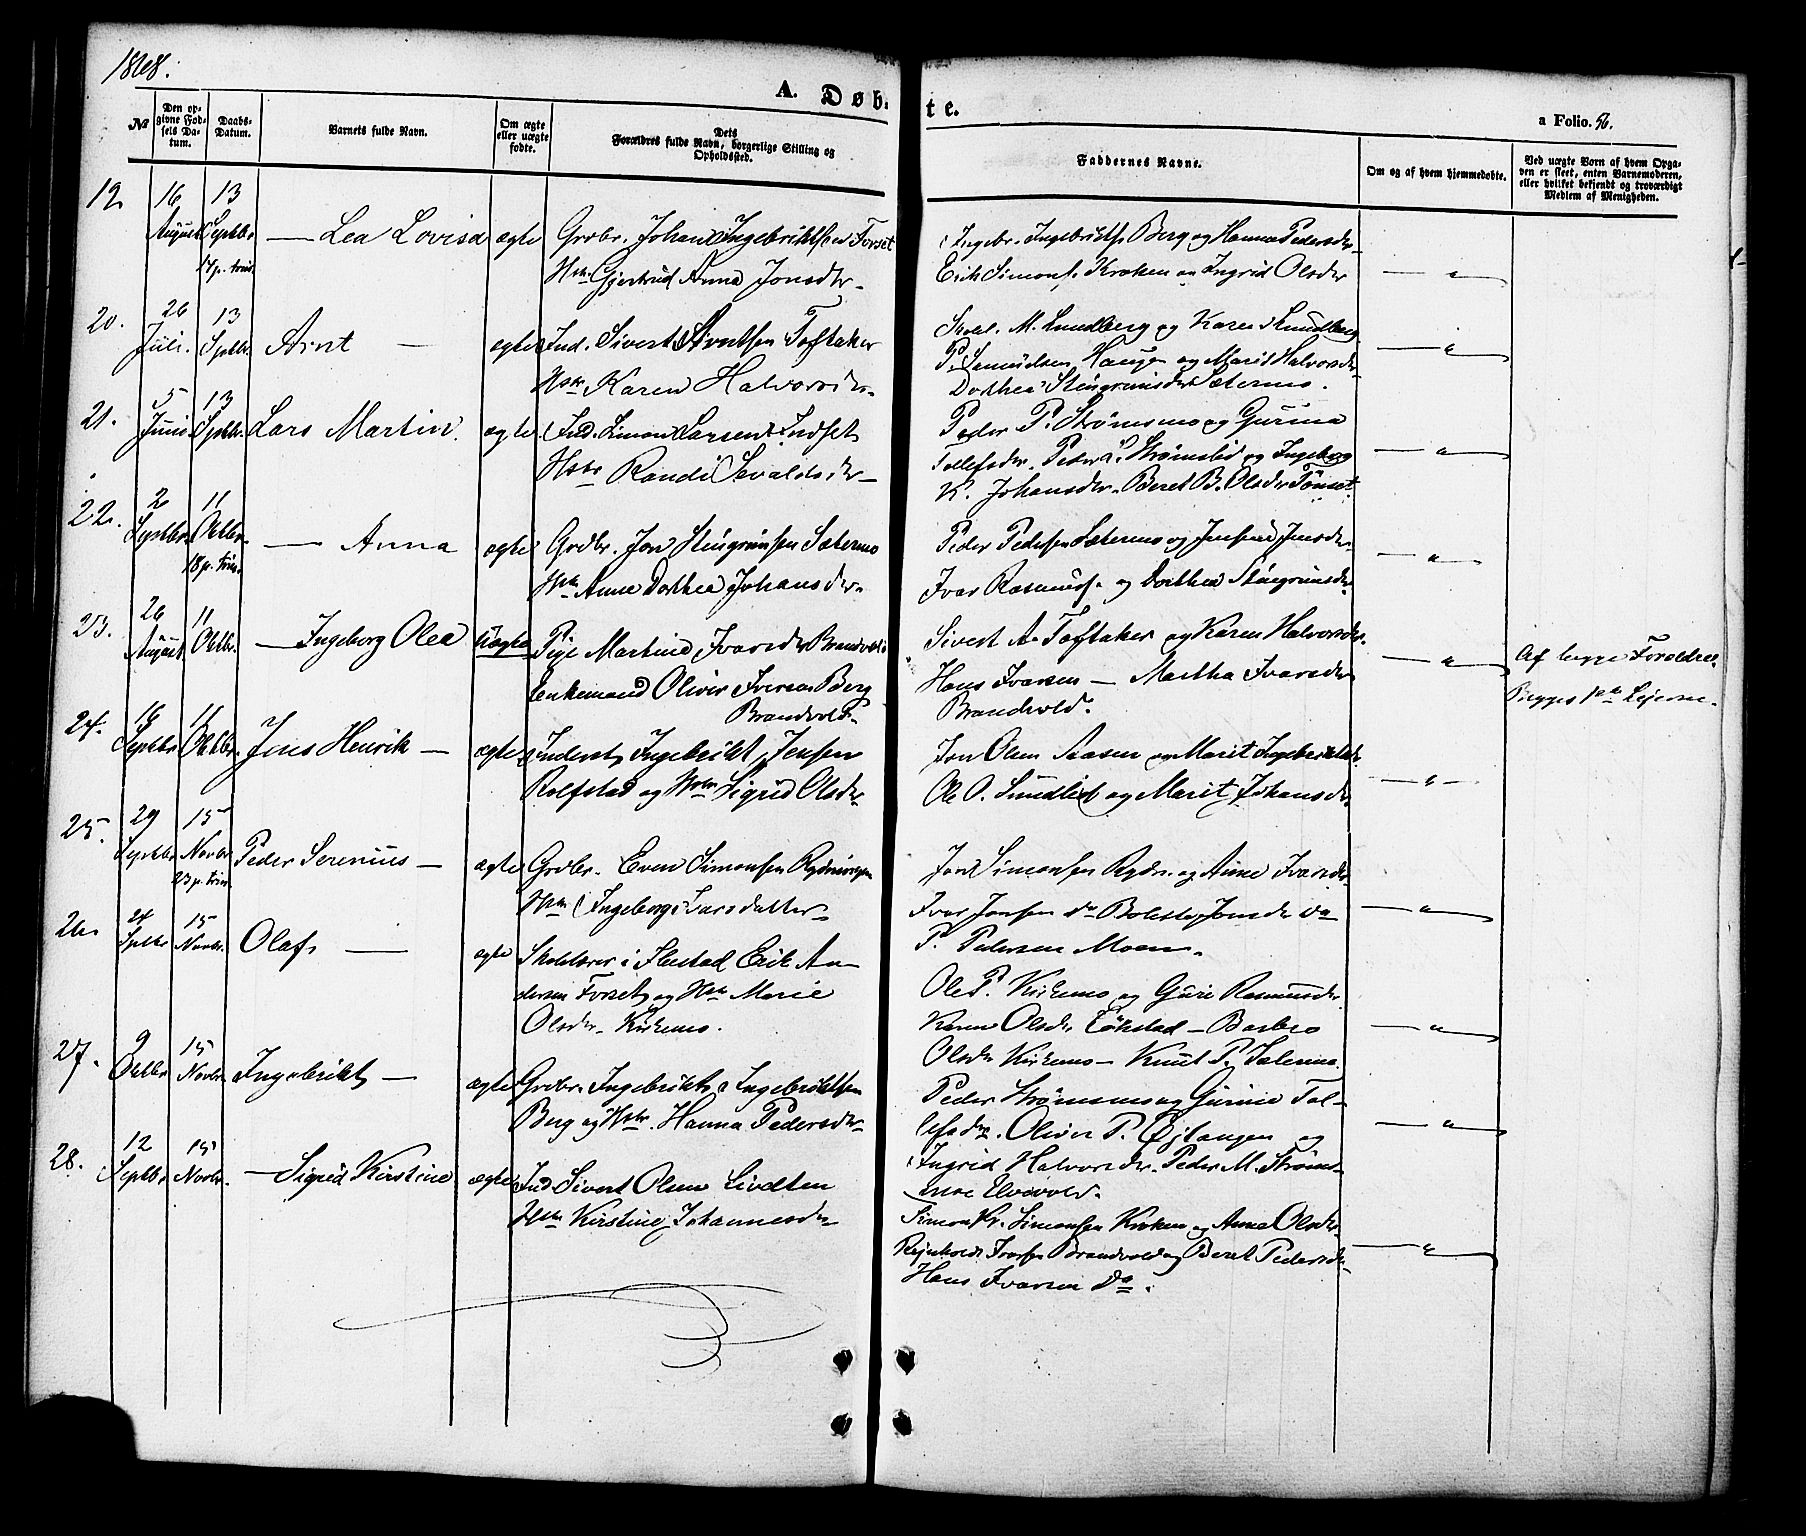 1868.
A. Døb- te.
a Folio. 56.
№
Den opgivne Fødsels Datum.
Daabs-Datum.
Barnets fulde Navn.
Om ægte eller uægte fødte.
Dets Forældres fulde Navn, borgerlige Stilling og Opholdssted.
Faddernes Navne.
Om og af hvem hjemmedøbte.
Ved uægte Børn af hvem Opgaven er skeet, enten Barnemoderen, eller hvilket bekjendt og troværdigt Medlem af Menigheden.
19. 16 August 13 Septbr. 17 p. trin. — Lea Lovisa ægte Grdbr. Johan Ingebrigtsen Forset
Hstr. Gjertrud Anna Jonsdtr.
Ingebr. Ingebrigts. Berg og Hanna Pedersdr.
Erik Simons. Kroken og Ingrid Olsdr — " —
20. 26 Juli. 13 Septbr. Arnt — ægte Ind. Sivert Arntsen Toftaker
Hstr. Karen Halvorsdr.
Skolel. M. Lundberg og Karen Lundberg
P. Samuelsen Haugen og Marit Halvorsdr. — " —
Dorthea Stengrimsdr Sætermo.
21. 5 Juni 13 Septbr. Lars Martin. ægte Ind. Simon Larsen Indset
Hstr Randi Sevaldsdr —
Peder P. Strømsmo og Gurina
Tollefsdr. Peder P. Strømslid og Ingeborg — " —
K. Johansdr. Beret B. Olsdr Tønset.
22. 2 Septbr. 11 Octbr. 18 p. trin. — Anna ægte Grdbr. Jon Stengrimsen Sætermo
Hstr. Anne Dorthea Johansdr.
Peder Pedersen Sætermo og Jensine Jensdr. — " —
Ivar Rasmus. og Dorthea Stengrimsdr.
23. 26 August 11 Octbr. — Ingeborg Olea uægte Pige Martine Ivarsdr Brandvold
Enkemand Oliver Iversen Berg
Brandvold.
Sivert A. Toftaker og Karen Halvorsdr.
Hans Ivarsen — Martha Ivarsdr — " —
Brandvold.
Af begge Forældre.
Begges 1ste Leierm.
24. 16 Septbr. 11 Octbr. Jens Henrik — ægte Inderst Ingebrikt Jensen
Rolfstad og Hstr. Sigrid Olsdr.
Jon Olsen Aasen og Marit Ingebriktsdr.
Ole O. Sundlid og Marit Johansdr — " —
25. 29 Septbr 15 Novbr. 23 p. trin. Peder Serenius — ægte Grdbr. Even Simonsen Rydningen
Hstr. Ingeborg Larsdatter.
Jon Simonsen Rydn. og Anne Ivarsdr.
Ivar Jonsen do Bolette Jonsdr do — " —
P. Pedersen Moen.
26. 24 Septbr 15 Novbr. Olaf — ægte Skolelærer i Flestad Erik An-
dersen Forset og Hstr. Marie
Olsdr. Kirkemo.
Ole P. Kirkemo og Guri Rasmusdr.
Karen Olsdr Løkstad — Barbro — " —
Olsdr Kirkemo — Knut P. Sætermo.
27. 9 Octbr 15 Novbr. Ingebrikt — ægte Grdbr. Ingebrikt Ingebriktsen
Berg og Hstr. Hanna Pedersdr.
Peder Strømsmo og Gurine Tol-
lefsdr. Oliver P. Ejlangen og — " —
Ingrid Halvorsdr. Peder M. Strøms-
moe Elvevold.
28. 12 Septbr 15 Novbr. — Sigrid Kirstine ægte Ind. Sivert Olsen Lividten
Hstr Kirstine Johannesdr
Simon Kr. Simonsen Kroken og Anne Olsdr.
Rejnhold Ivarsen Brandvold og Beret Pedersdr. — " —
Hans Ivarsen do.